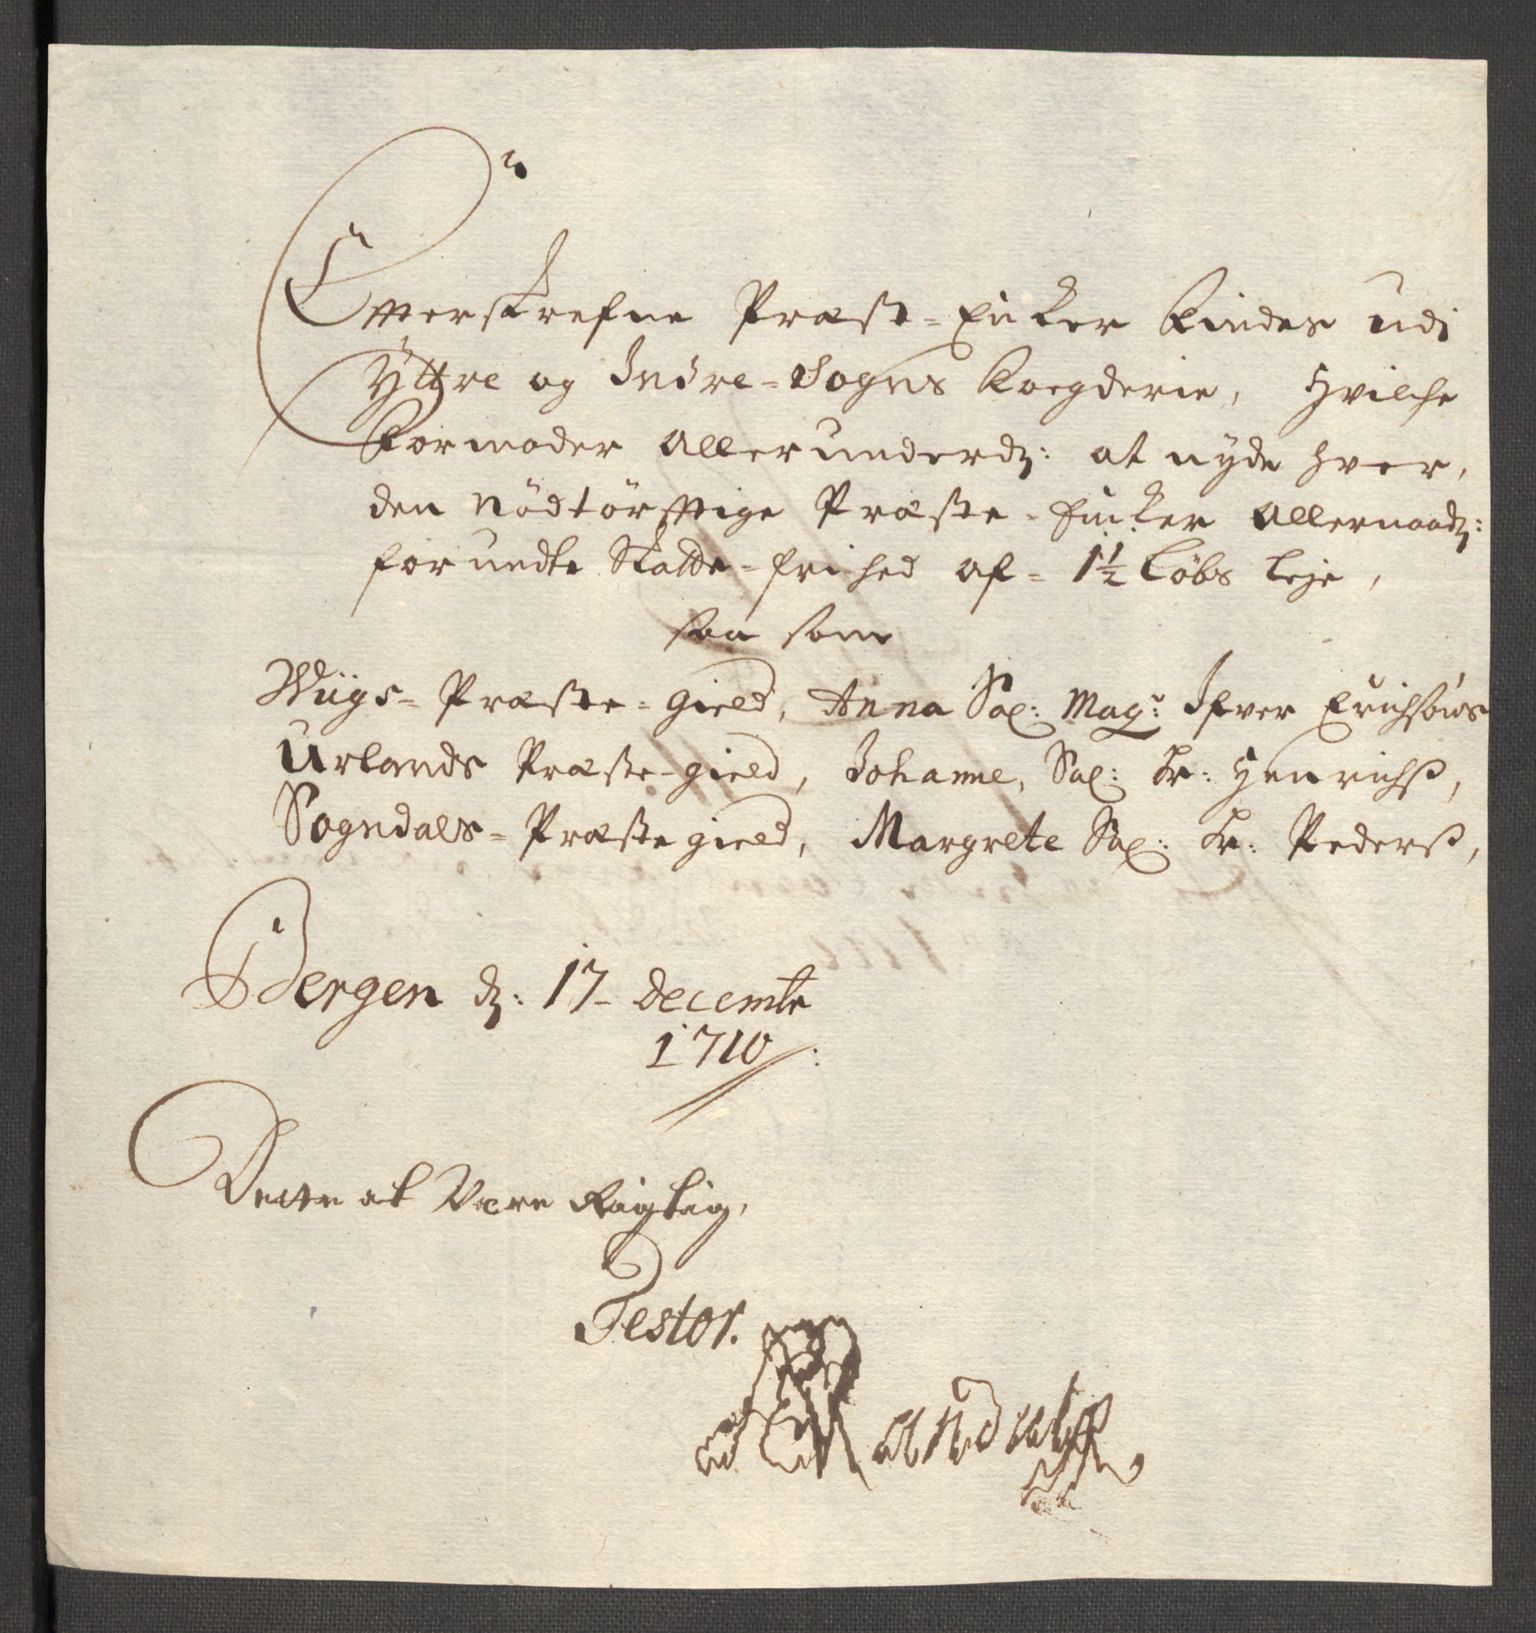 Efterskrefne Præste-Enker findes udi
Yttre og Indre-Sogns Foegderie, Hvilche
formoder allerunderdn: at nyde hver,
den nödtörfftige Præste-Encker allernaadn:
forundte Skatte-frihed af = 1½ Löbs leje,
saa som
Wiigs-Præste-gield, Anna Sal: Magr: Ifver Erichsöns
Urlands Præste-gield, Johanne, Sal: Hr: Henrichß,
Sogndals-Præstegield, Margrete Sal: Hr: Pederß,
Bergen dn: 17- Decembr
1710:
Dette at Være Rigtig,
Testor.
Randulff